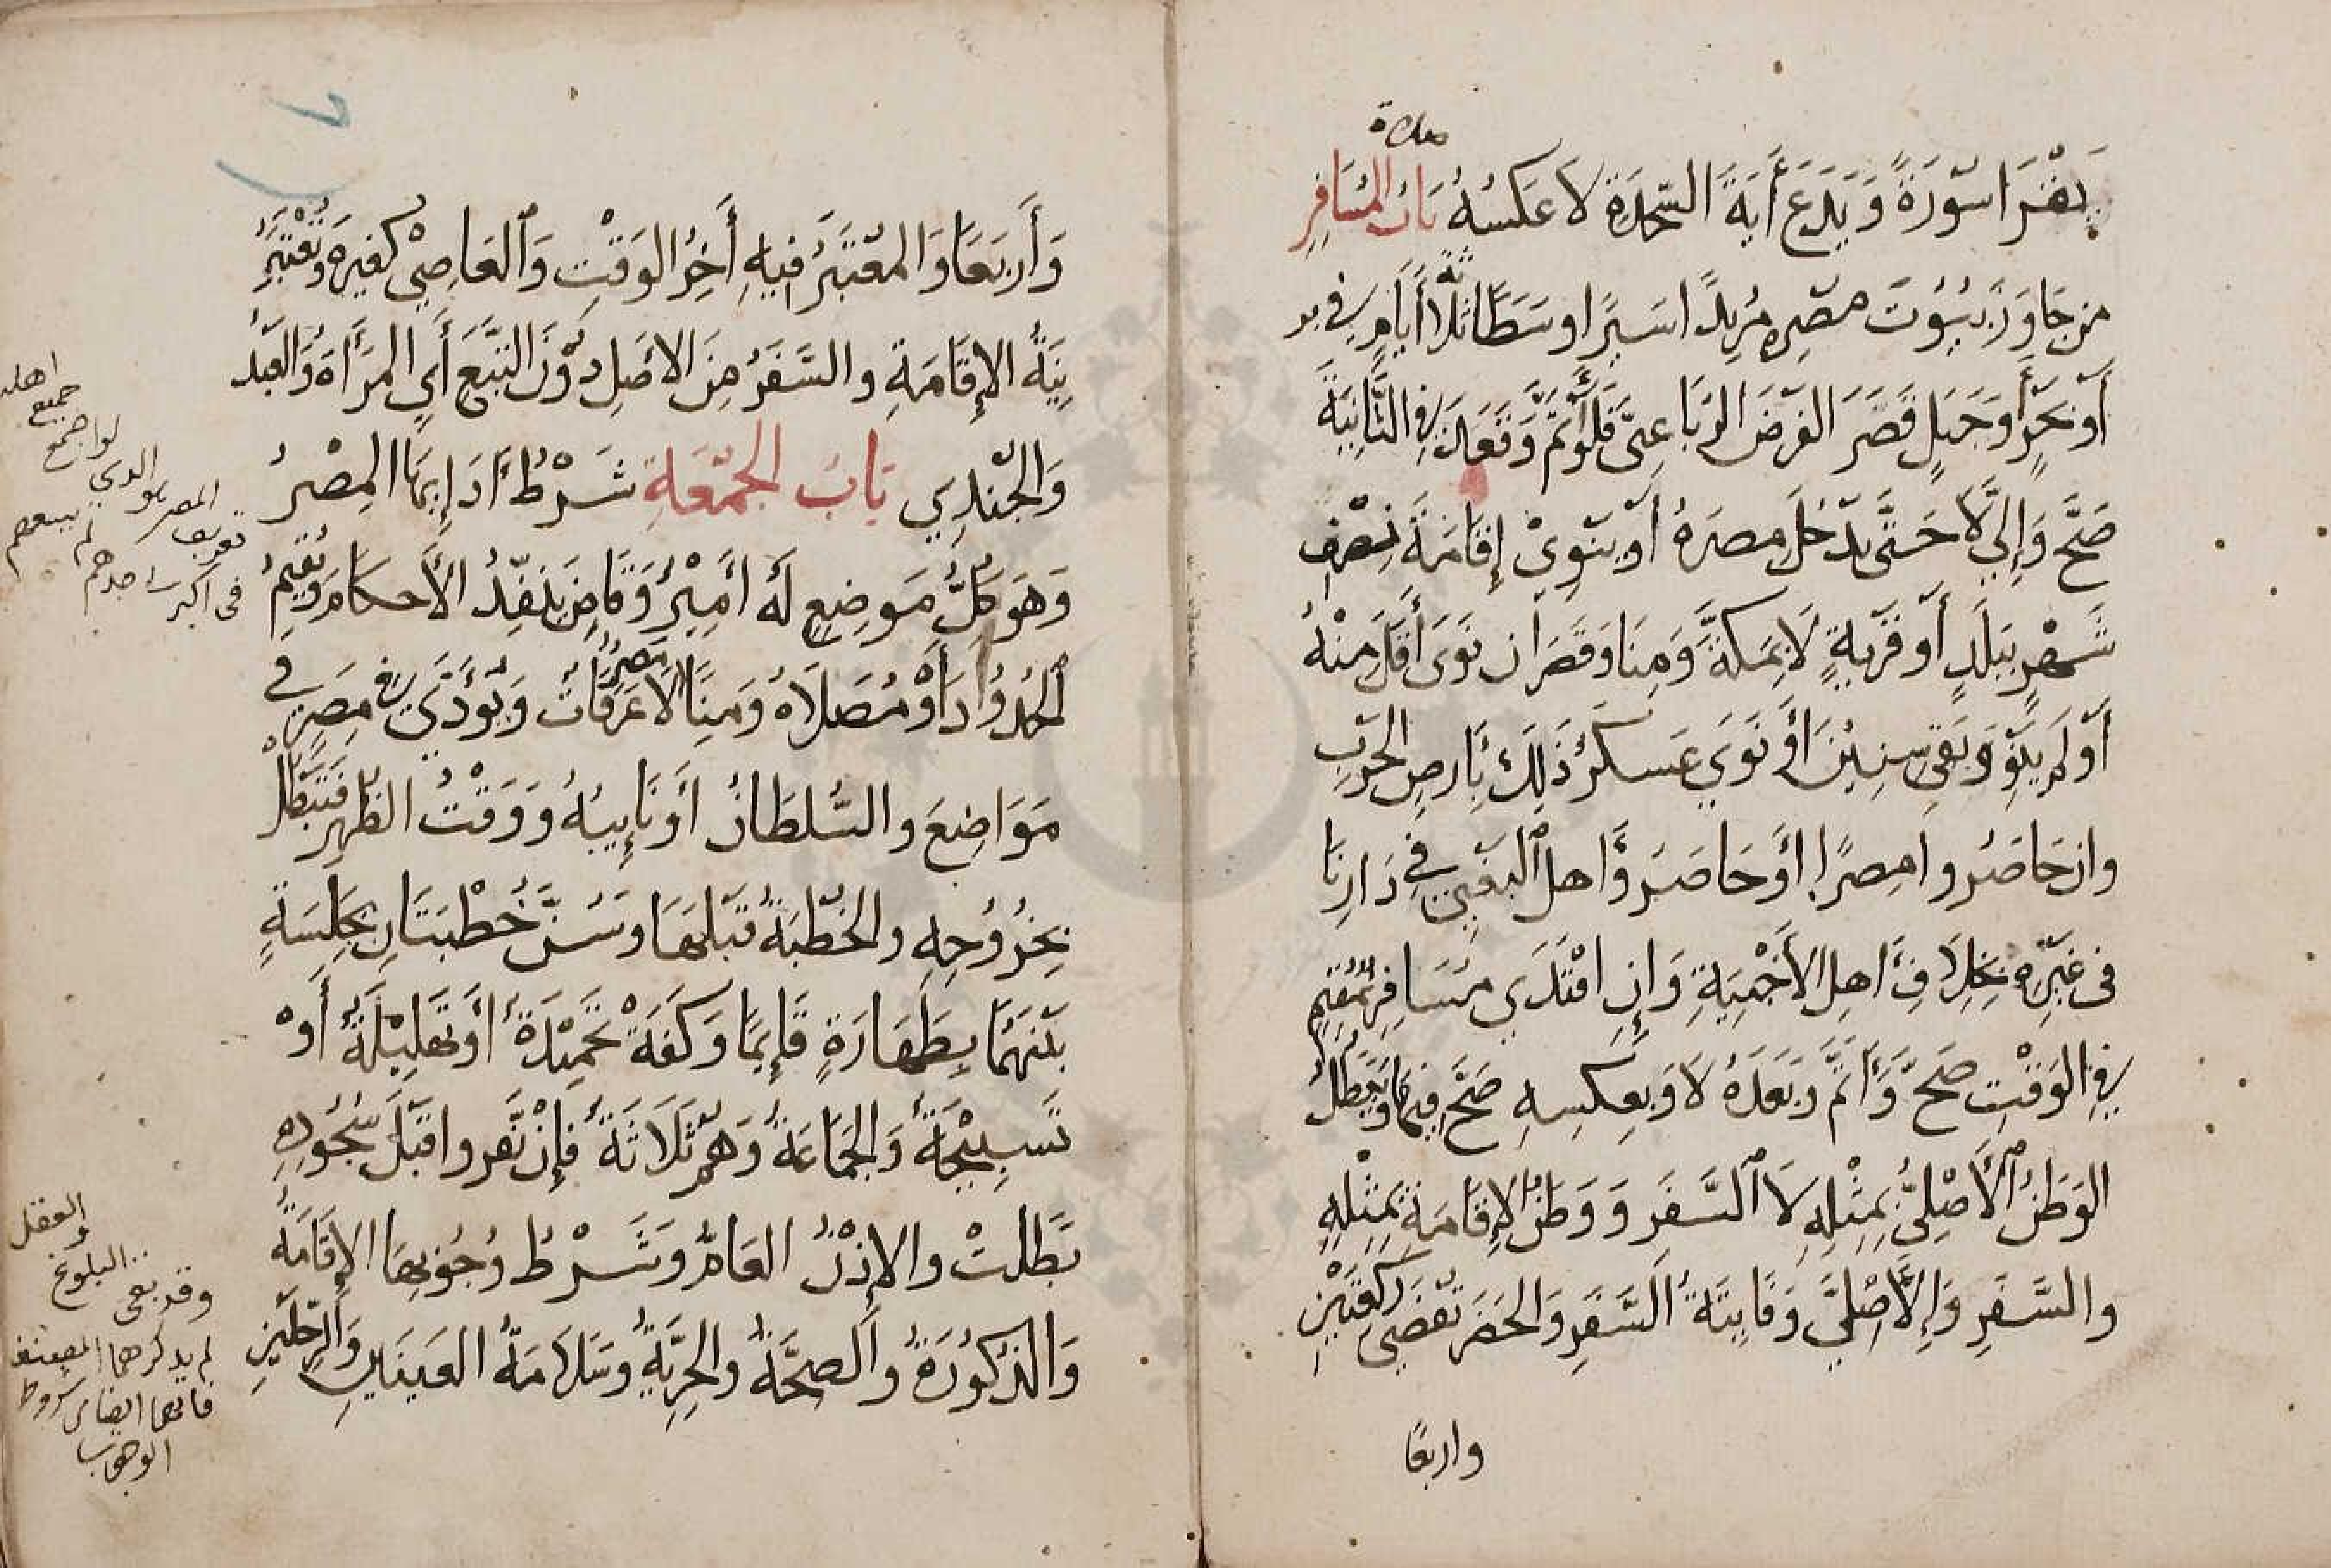 صلاة
يقرا سورة ويدع أية السجدة لا عكسه باب المسافر
من جاوز بيوت مصره مريدا سيرا وسطا ثلاثة أيام في بر
أو بحر أو جبل قصر الفرض الرباعي فلو أتم وقعد في الثانية
صح وإلا لا حتى يدخل مصره أو ينوي إقامة نصف
شهر ببلد أو قرية لا بمكة ومنا وقصر ان نوى أقل منه
أو لم ينو وبقي سنين أو نوي عسكر ذلك بأرض الحرب
وان حاصروا مصرا أو حاصروا اهل البغي في دارنا
في غيره بخلاف اهل الأخبية وإن اقتدي مسافر بمقيم
في الوقت صح وأتم وبعده لا وبعكسه صح فيهما ويبطل
الوطن الأصلي بمثله لا السفر ووطن الإقامة بمثله
والسفر والأصلي وفايتة السفر والحضر تقضي ركعتين
واربعا
وأربعا والمعتبر فيه أخر الوقت والعاصي كغيره وتعتبر
نية الإقامة والسفر من الاصل دون التبع أي المرأة والعبد
والجندي باب الجمعة شرط أدايها المصر
وهو كل موضع له امير وقاض ينفذ الأحكام ويقيم
الحدود أو مصلاه ومنا مصر لا عرفات وتؤدي في مصر في
مواضع والسلطان أو نايبه ووقت الظهر فتبطل
بخروجه والخطبة قبلها وسن خطبتان بجلسة
بينهما بطهارة قايما وكفة تحميدة أو تهليلة أو
تسبيحة والجماعة وهم ثلاثة فإن نفروا قبل سجوده
بطلت والإذن العام وشرط وجوبها الإقامة
والذكورة والصحة والحرية وسلامة العينين والرجلين
تعريف المصر هو الذي لو اجتمع جميع اهله
في اكبر مساجدهم لم يسعهم
وقد بقى البلوغ والعقل
لم يذكرهما المصنف
فانهما ايضا من شروط
الوجوب